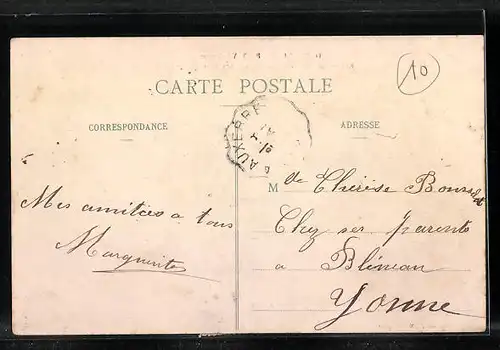 10
CARTE POSTALE
CORRESPONDANCE
ADRESSE
AUXERRE
Mes amitiées a tous
Marguerite
Mlle Thérèse
Chez ses parents
a Blèneau
Yonne